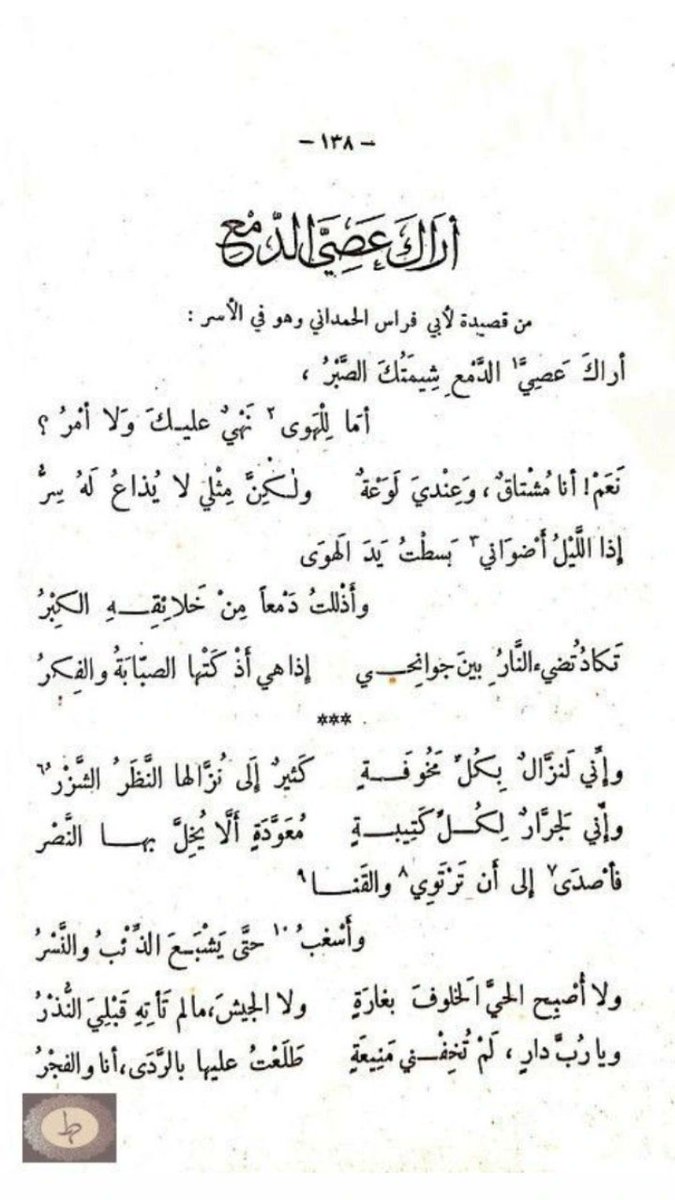 - ١٣٨ -
أَرَاكَ عَصِيَّ الدَّمْعِ
من قصيدة لأبي فراس الحمداني وهو في الأسر :
أراكَ عَصِيَّ١ الدَّمْعِ شِيمَتُكَ الصَّبْرُ ،
أمَا لِلْهَوى٢ نَهْيٌ عليـكَ وَلَا أمْرُ ؟
نَعَمْ! أنا مُشْتاقٌ، وَعِنْديَ لَوْعَةٌ ولٰكِنَّ مِثْلي لا يُذاعُ لَهُ سِرُّ
إذا اللَّيْلُ أضْوَاني٣ بَسطْتُ يَدَ الهَوَى
وأذْللتُ دَمْعاً مِنْ خَلائِقِـهِ الكِبْرُ
تَكادُ تُضيءُ النَّارُ بينَ جوانِحـي إذا هي أذْكَتْها الصبّابَةُ والفِكرُ
***
وإنّي لَنزَّالٌ بِكُلِّ مَخُوفَـةٍ كَثيرٌ إلَى نُزَّالها النَّظَرُ الشَّزْرُ٦
وإنّي لَجرَّارٌ لِكُـلِّ كَتِيبـةٍ مُعَوَّدَةٍ ألَّا يُخِلَّ بهـا النَّصْر
فأصْدَى٧ إلى أن تَرْتَوِي٨ والقَنـا٩
وأسْغبُ١٠ حتَّى يَشْبَـعَ الذِّئْبُ والنَّسْرُ
ولا أصْبِح الحيَّ الخلوفَ بغارَةٍ ولا الجيشَ، مالم تَأتِهِ قَبْلِيَ النُّذْرُ
ويا رُبَّ دارٍ ، لَمْ تُخِفْـني مَنِيعَةٍ طَلَعْتُ عليها بالرَّدَى، أنا والفجْرُ